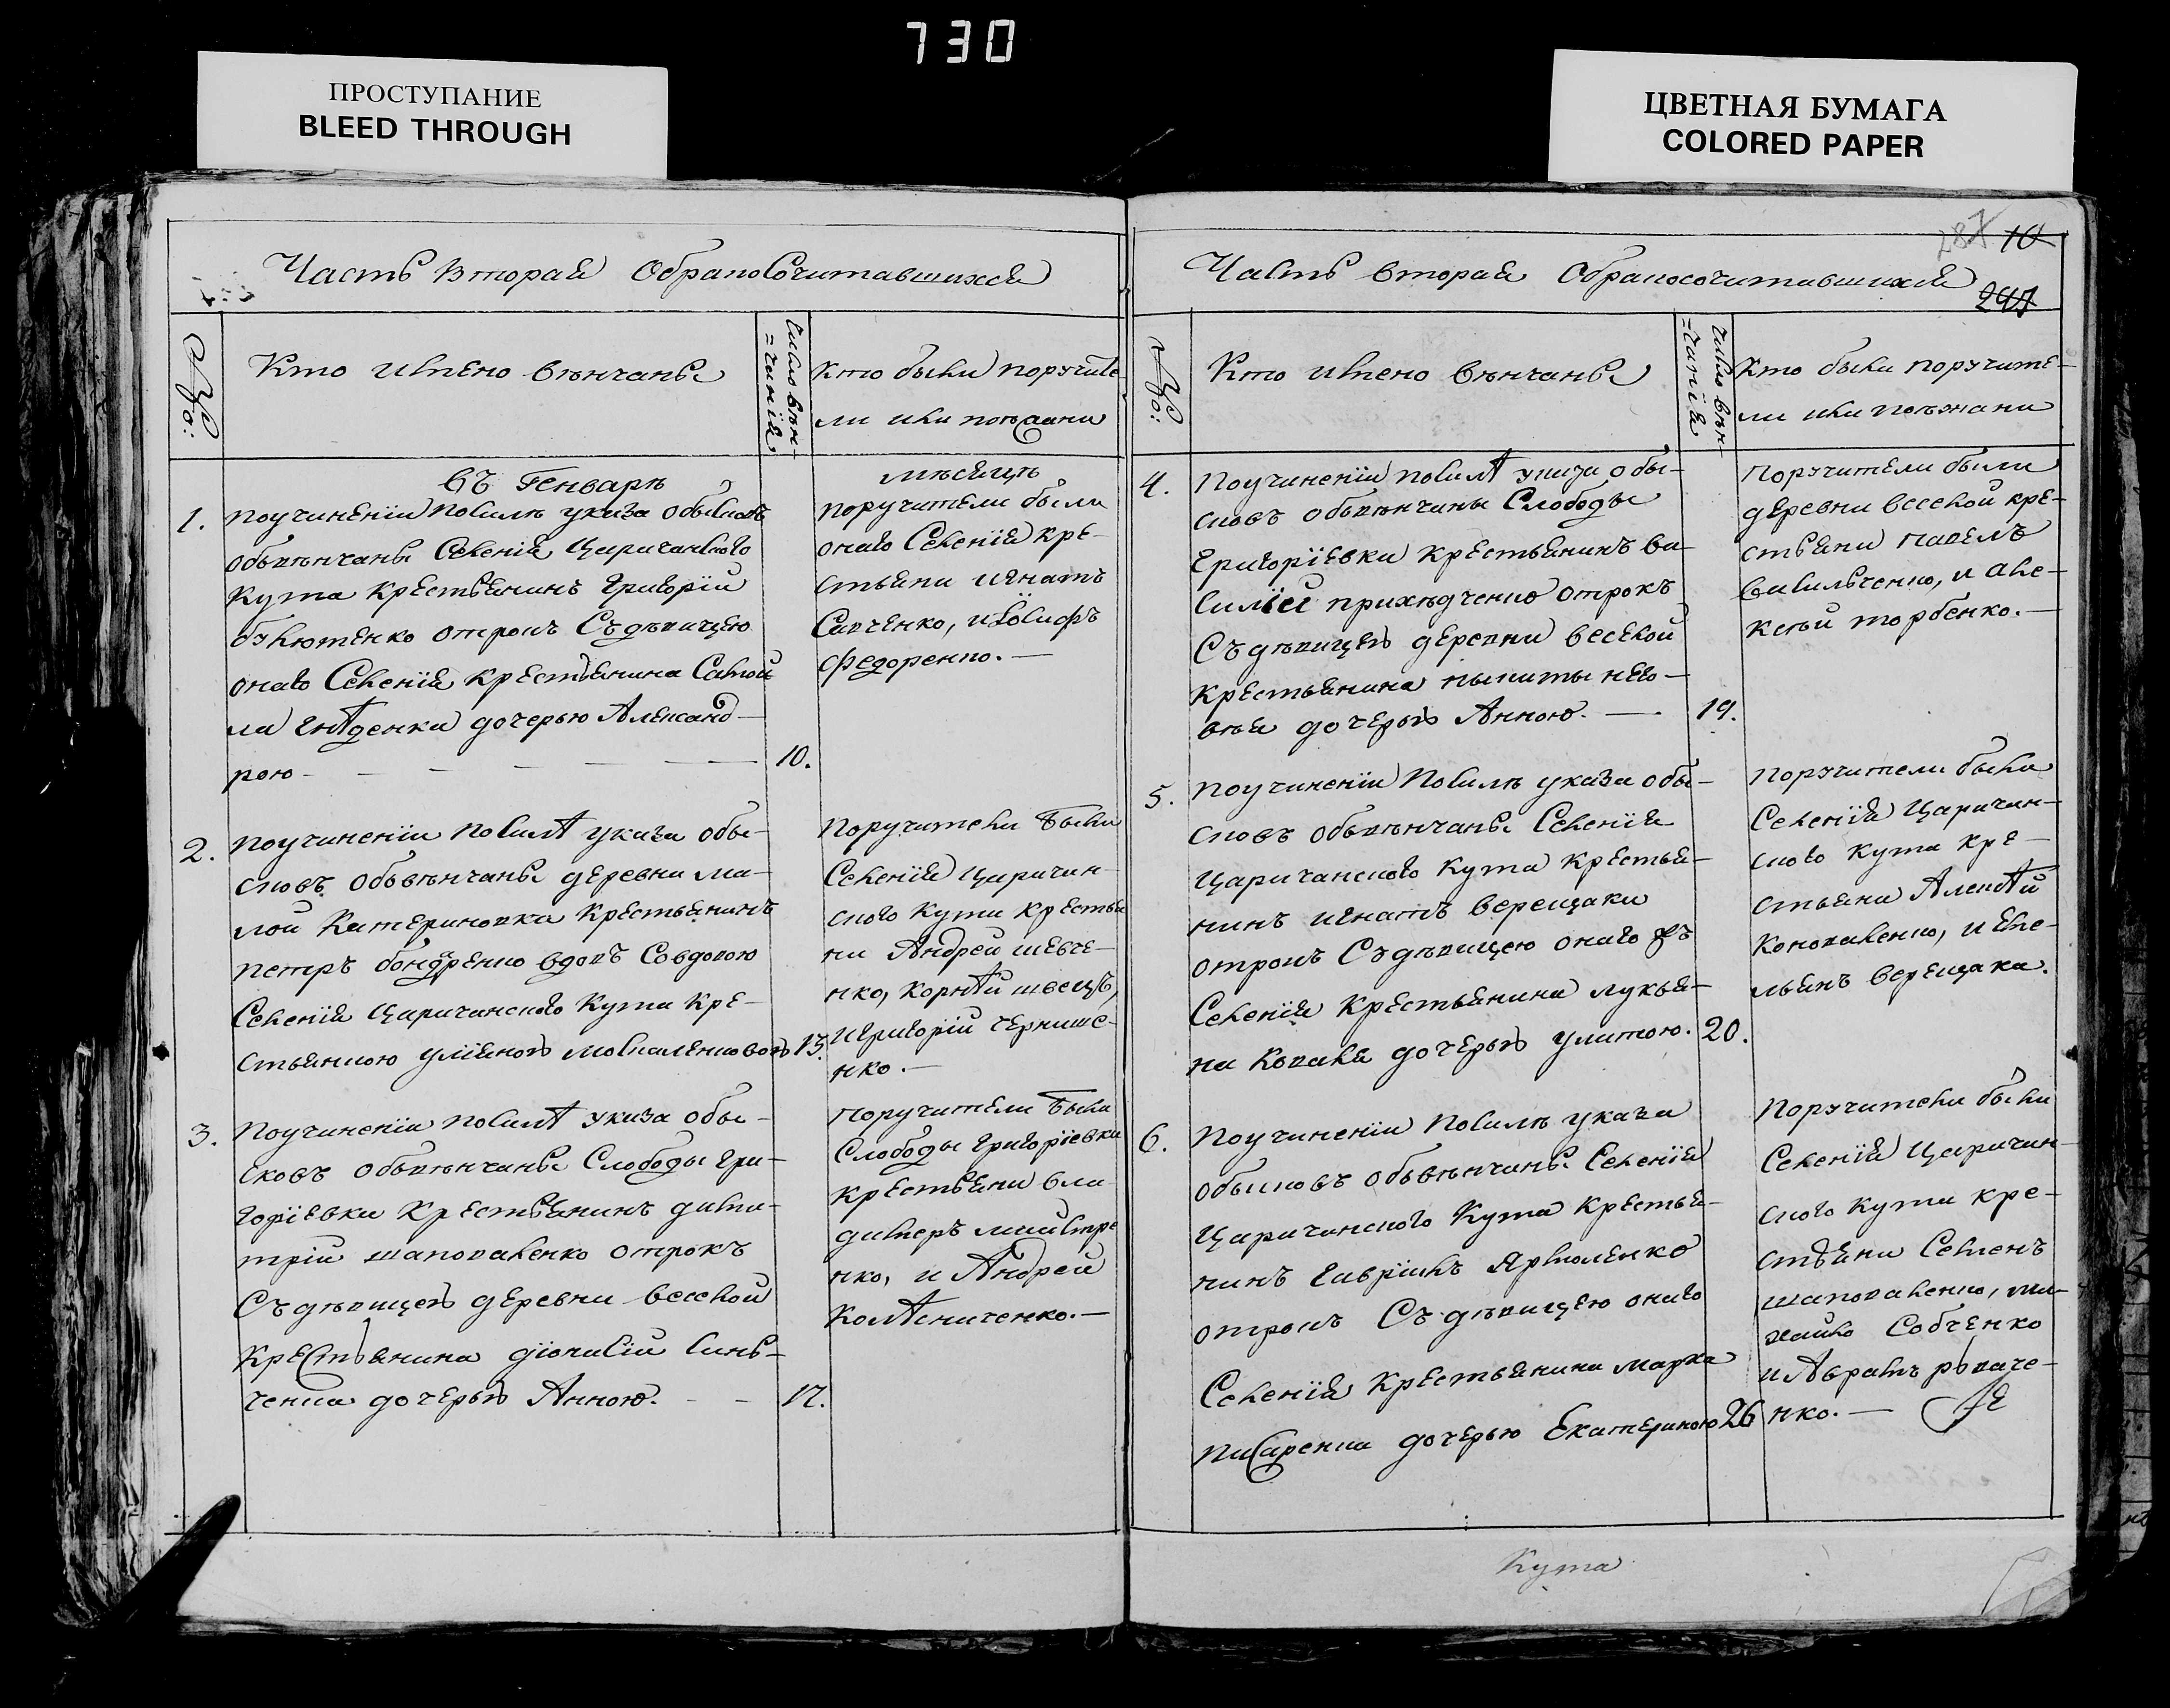 730
ПРОСТУПАНИЕ
BLEED THROUGH
ЦВЕТНАЯ БУМАГА
COLORED PAPER
Часть вторая обракосочитавшихся
№:
Кто икемо венчаны
число вѣн-
=чанія,
Кто были поручите
ли или поезжани
въ Генварѣ
мѣсяцѣ
1. поучиненіи посилѣ указа обысковъ
обвѣнчаны Селенія Царичанского
кута крестьянинъ Григорій
отрокъ Съдѣвицею
оного Селенія крестьянина Самой
ла Гнѣденка дочерью Александ-
рою
10.
поручители были
оного Селенія кре-
стьяни игнатъ
Савченко, иіосифъ
федоренко.—
2. поучиненіи посилѣ указа обы-
сковъ обвѣнчаны деревни ма-
лой Катериновки крестьянинъ
петръ бондренко вдовъ Совдовою
Селенія Царичанского кута кре-
стьянкою уліяною москаленковою
13.
поручители были
Селенія Царичан-
ского кута крестья
ни Андрей шевче-
нко, корнѣй швецъ,
игригорій чернише-
нко.—
3. поучиненіи посилѣ указа обы-
сковъ обвѣнчаны Слободы Гри-
горіевки крестьянинъ дими-
трій шаповаленко отрокъ
Съдѣвицею деревни веселой
крестьянина діонисія синь-
ченка дочерью Анною.
17.
поручители были
Слободы григоріевки
крестьяни вла
димеръ
нко, и Андрей
колѣсниченко.—
Часть вторая обракосочитавшихся
287 10
297
№:
Кто икемо венчаны
число вѣн-
=чанія
Кто были поручите-
ли или поезжани
4. поучиненіи посилѣ указа обы-
сковъ обвѣнчаны Слободы
Григоріевки крестьянинъ ва-
силій прихѣдченко отрокъ
Съдѣвицею деревни веселой
крестьянина никиты него-
дочерью Анною.—
19.
поручители были
деревни веселой кре-
стьяни павелъ
васильченко, и але-
ксѣй торбенко.—
5. поучиненіи посилѣ указа обы-
сковъ обвѣнчаны Селенія
Царичанского кута крестья-
нинъ игнатъ верещака
отрокъ Съдѣвицею оного жъ
Селенія крестьянина лукья-
на коваля дочерью улитою.
20.
поручители были
Селенія Царичан-
ского кута кре-
стьяни Алексѣй
коноваленко, и еме-
льянъ верещака.
6. поучиненіи посилѣ указа
обысковъ обвѣнчаны Селенія
Царичанского кута крестья-
нинъ гавріилъ Ярмоленко
отрокъ Съ дѣвицею оного
Селенія крестьянина марка
писаренка дочерью Екатериною
26
поручители были
Селенія Царичан
ского кута кре-
стьяни Семенъ
шаповаленко, ми-
хайло Собченко
и Аврамъ
нко.—
Кута